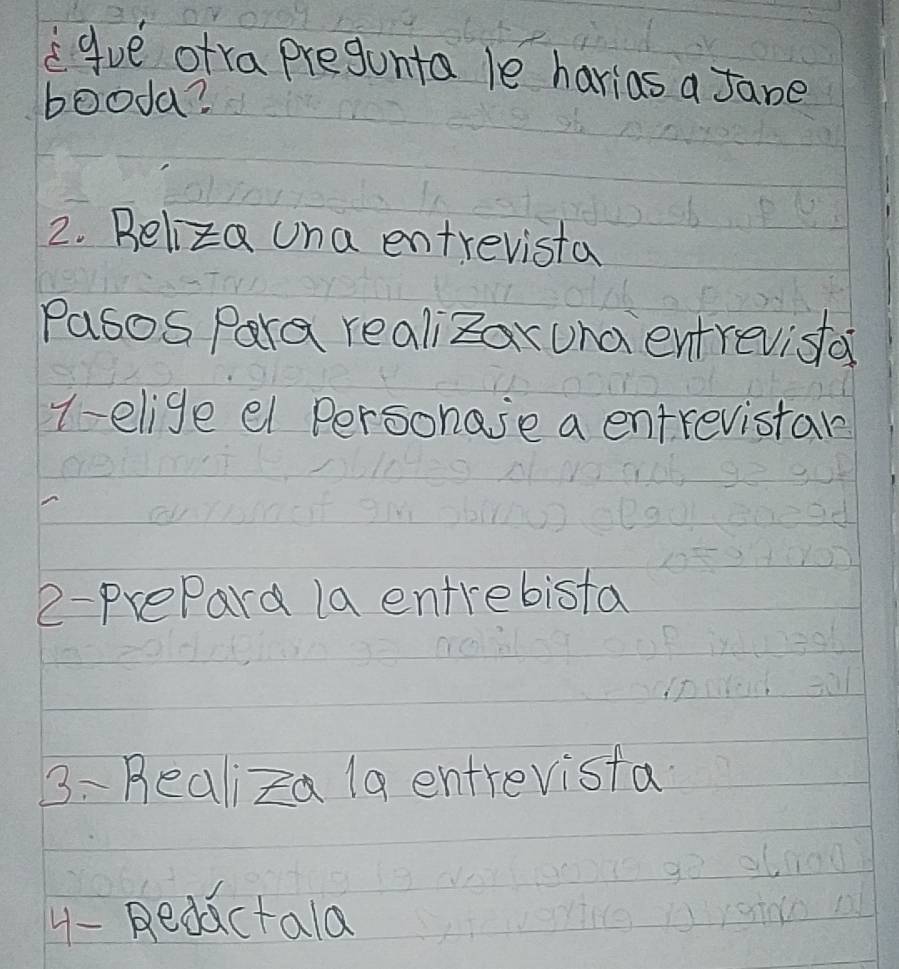 ¿qué otra Pregunta le harias a Jane
booda?
2. Reliza una entrevista
Pasos Para realizar una entrevista
1-elige el Personaje a entrevistar
2-prePara la entrebista
3.- Realiza la entrevista
4- Redáctala